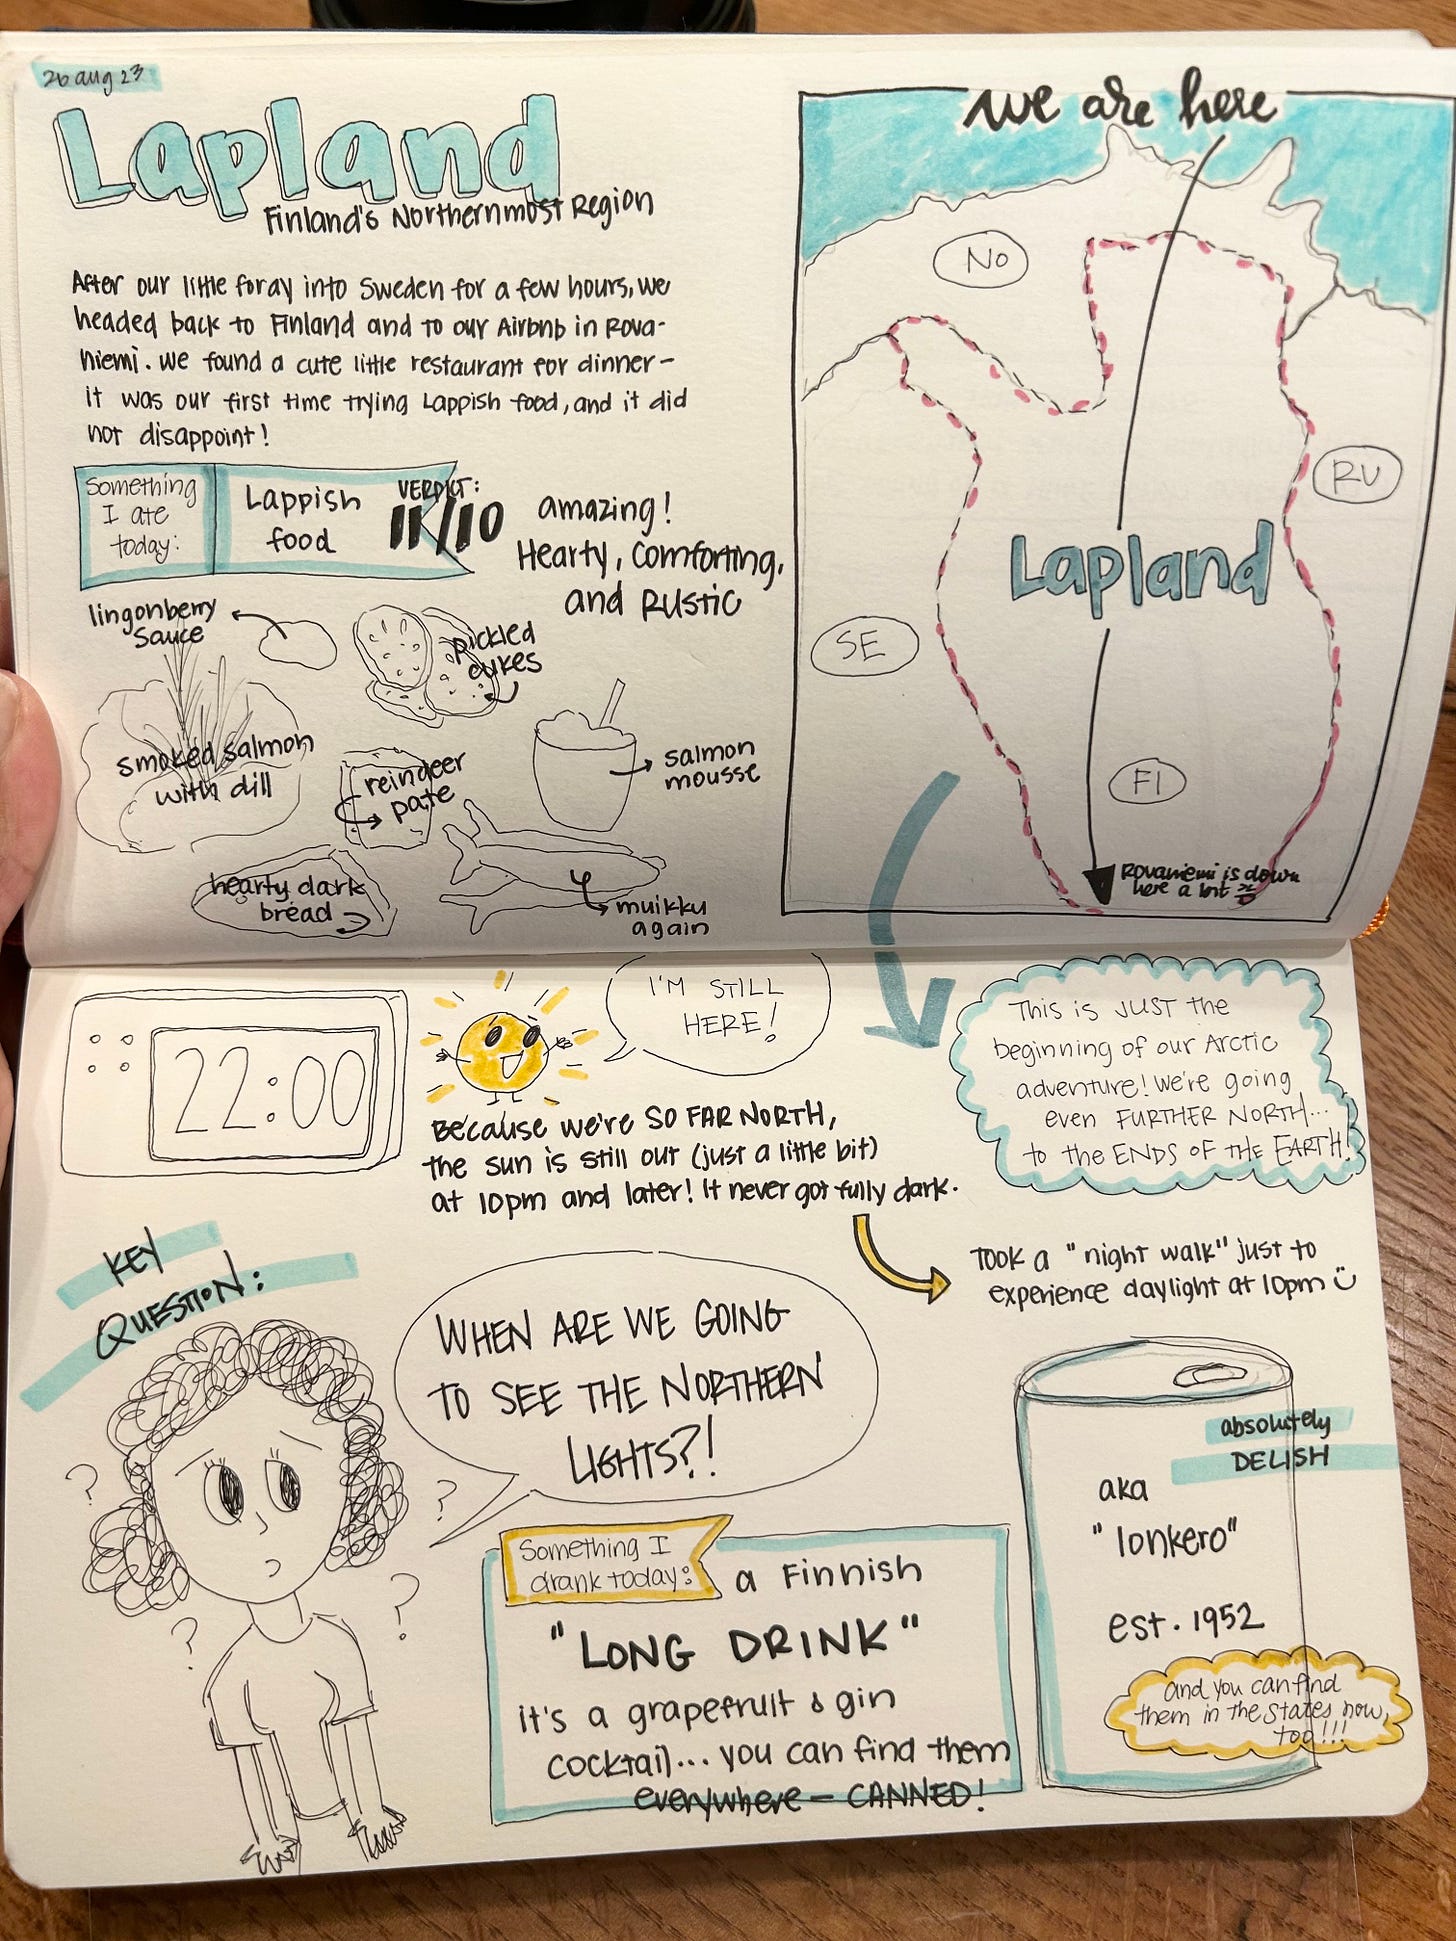 26 aug 23
Lapland
Finland's Northernmost Region
After our little foray into Sweden for a few hours, we
headed back to Finland and to our Airbnb in Rova-
niemi. We found a cute little restaurant for dinner -
it was our first time trying Lappish food, and it did
not disappoint!
Something
I ate
today:
Lappish
food
VERDICT:
11/10
amazing!
Hearty, comforting,
and rustic
lingonberry
sauce
pickled
cukes
smoked salmon
with dill
reindeer
pate
salmon
mousse
hearty dark
bread
muikku
again
we are here
NO
RU
Lapland
SE
FI
Rovaniemi is down
here a bit
22:00
I'M STILL
HERE!
Because we're SO FAR NORTH,
the sun is still out (just a little bit)
at 10pm and later! It never got fully dark.
This is JUST the
beginning of our Arctic
adventure! We're going
even FURTHER NORTH...
to the ENDS OF THE EARTH!
Took a "night walk" just to
experience daylight at 10pm
KEY
QUESTION:
WHEN ARE WE GOING
TO SEE THE NORTHERN
LIGHTS?!
?
?
?
?
Something I
drank today:
a Finnish
"LONG DRINK"
it's a grapefruit & gin
cocktail... you can find them
everywhere - CANNED!
absolutely
DELISH
aka
"lonkero"
est. 1952
and you can find
them in the States now,
too!!!